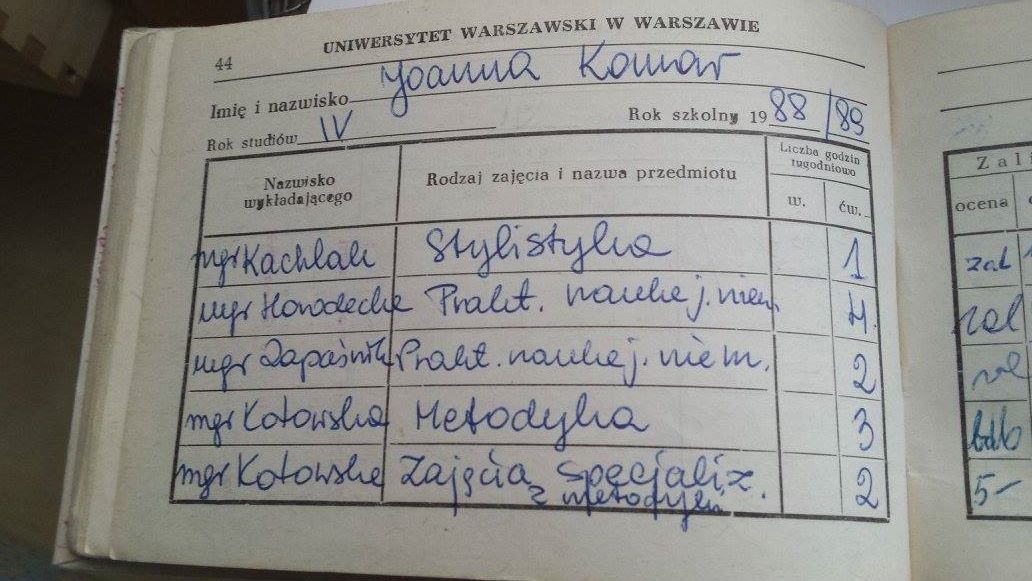 UNIWERSYTET WARSZAWSKI W WARSZAWIE
44
Imię i nazwisko Joanna Komar
Rok studiów IV Rok szkolny 19 88/89
Nazwisko wykładającego Rodzaj zajęcia i nazwa przedmiotu Liczba godzin tygodniowo
w. ćw.
mgr Kachlak Stylistyka 1
mgr Horodecka Prakt. nauka j. niem. 4
mgr Zapaśnik Prakt. nauka j. niem. 2
mgr Kotowska Metodyka 3
mgr Kotowska Zajęcia specjaliz. 2
z metodyki
Zali
ocena
zal
zal
zal
bdb
5-